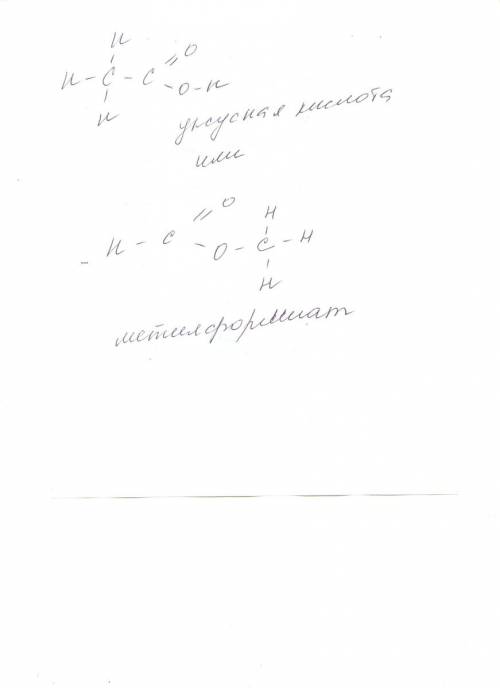 H
H - C - C = O
O - H
H
уксусная кислота
или
O
H
- H - C = O - C - H
H
метилформиат